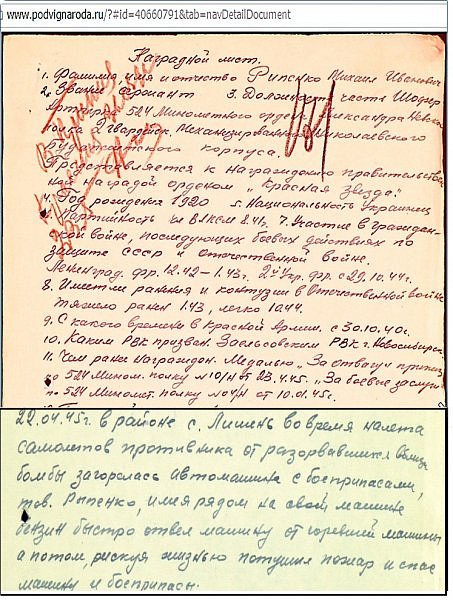 www.podvignaroda.ru/?#id=40660791&tab=navDetailDocument
Наградной лист.
1. Фамилия, имя и отчество Рипенко Михаил Иванович
2. Звание сержант 3. Должность, часть Шофер
524 Минометного ордена Александра Невского
полка 2 гвардейск. Механизированного Николаевского
Будапештского корпуса.
Представляется к награждению правительствен
ной наградой орденом „Красная Звезда"
4. Год рождения 1920 5. Национальность Украинец
6. Партийность чл ВЛКСМ 8.41г. 7. Участие в граждан-
ской войне, последующих боевых действиях по
защите СССР и отечественной войне.
Ленинград. фр. 12.42-1.43г. 2й Укр. фр. с 29.10.44г.
8. Имеет ли ранения и контузии в Отечественной войне
тяжело ранен 1.43, легко 10.44.
9. С какого времени в Красной Армии. с 30.10.40г.
10. Каким РВК призван. Заельцовским РВК г. Новосибирск
11. Чем ранее награжден. Медалью „За отвагу приказ
по 524 Мином. полку N10/Н от 23.4.45г. „За боевые заслуги
по 524 Миномет. полку N04/Н от 10.01.45г.
22.04.45г. в районе с. Лишень во время налета
самолетов противника от разорвавшейся вблизи
бомбы загорелась автомашина с боеприпасами,
тов. Рыпенко, имея рядом на свой машине
бензин быстро отвел машину от горевшей машины
а потом, рискуя жизнью потушил пожар и спас
машину и боеприпасы.